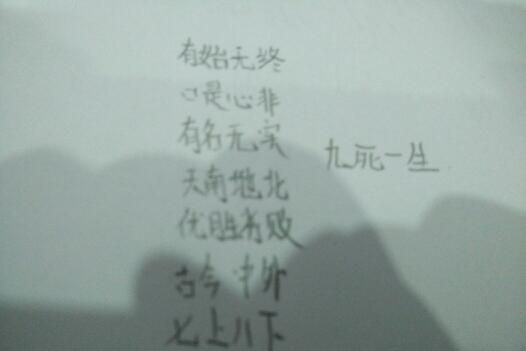 有始无终
口是心非
有名无实
九死一生
天南地北
优胜劣败
古今中外
七上八下